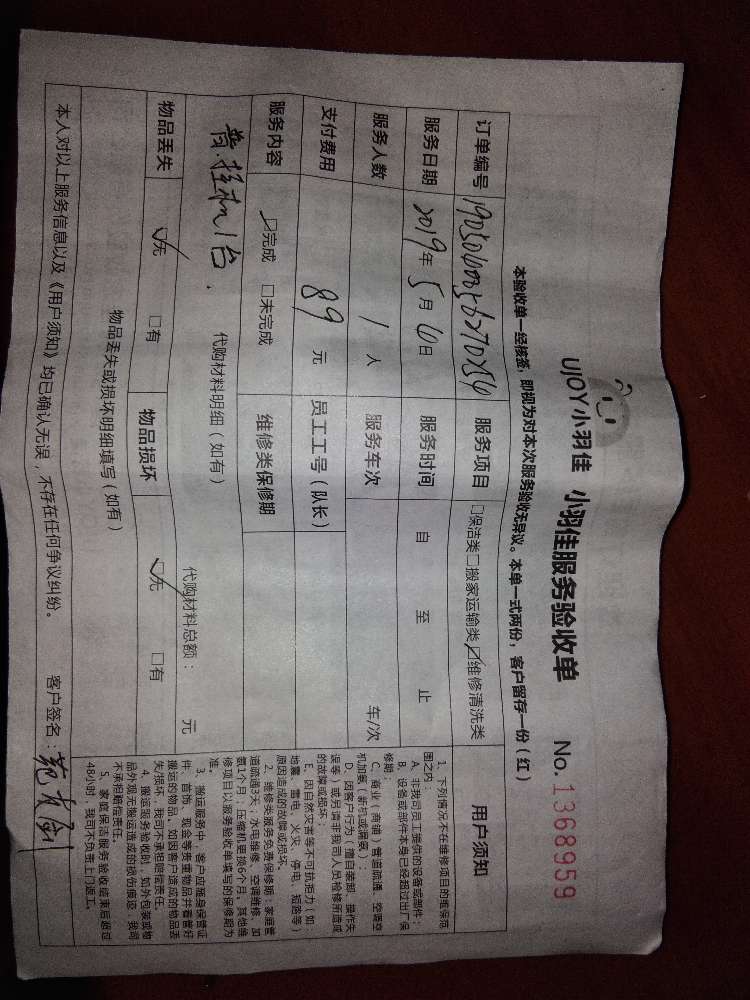 UJOY小羽佳 小羽佳服务验收单 No.1368959
本验收单一经核签，即视为对本次服务验收无异议。本单一式两份，客户留存一份（红）
订单编号 服务项目 □保洁类□搬家运输类☑维修清洗类
服务日期 2019年5月6日 服务时间 自 至 止
服务人数 1人 服务车次 车/次
支付费用 89元 员工工号（队长）
服务内容 ☑完成 □未完成 维修类保修期
挂机1台. 代购材料明细（如有） 代购材料总额： 元
物品丢失 ☑无 □有 物品损坏 ☑无 □有
物品丢失或损坏明细填写（如有）
本人对以上服务信息以及《用户须知》均已确认无误，不存在任何争议纠纷。 客户签名：
用户须知
1、下列情况不在维修项目的维保范
围之内：
A、非我司员工提供的设备或部件；
B、设备或部件本身已经超过出厂保
修期；
C、商业（商铺）管道疏通，空调空
机加氨（新机或满氨）；
D、因客户行为（擅自装卸、操作失
误等）或另请非我司人员检修所造成
的故障或损坏；
E、因自然灾害等不可抗拒力（如
地震、雷电、火灾、停电、短路等）
原因造成的故障或损坏。
2、维修类服务免费保修期：家庭管
道疏通3天；水电维修、空调维修、加
氨1个月；压缩机更换6个月。其他维
修项目以服务验收单填写的保修期为
准。
3、搬运服务中，客户应随身保管证
件、首饰、现金等贵重物品并看管好
搬运的物品。如因客户造成的物品丢
失/损坏，我司不承担赔偿责任。
4、搬运服务验收时，如外包装或物
品外观无搬运造成的损伤痕迹，我司
不承担赔偿责任。
5、家庭保洁服务验收结束后超过
48小时，我司不负责上门返工。